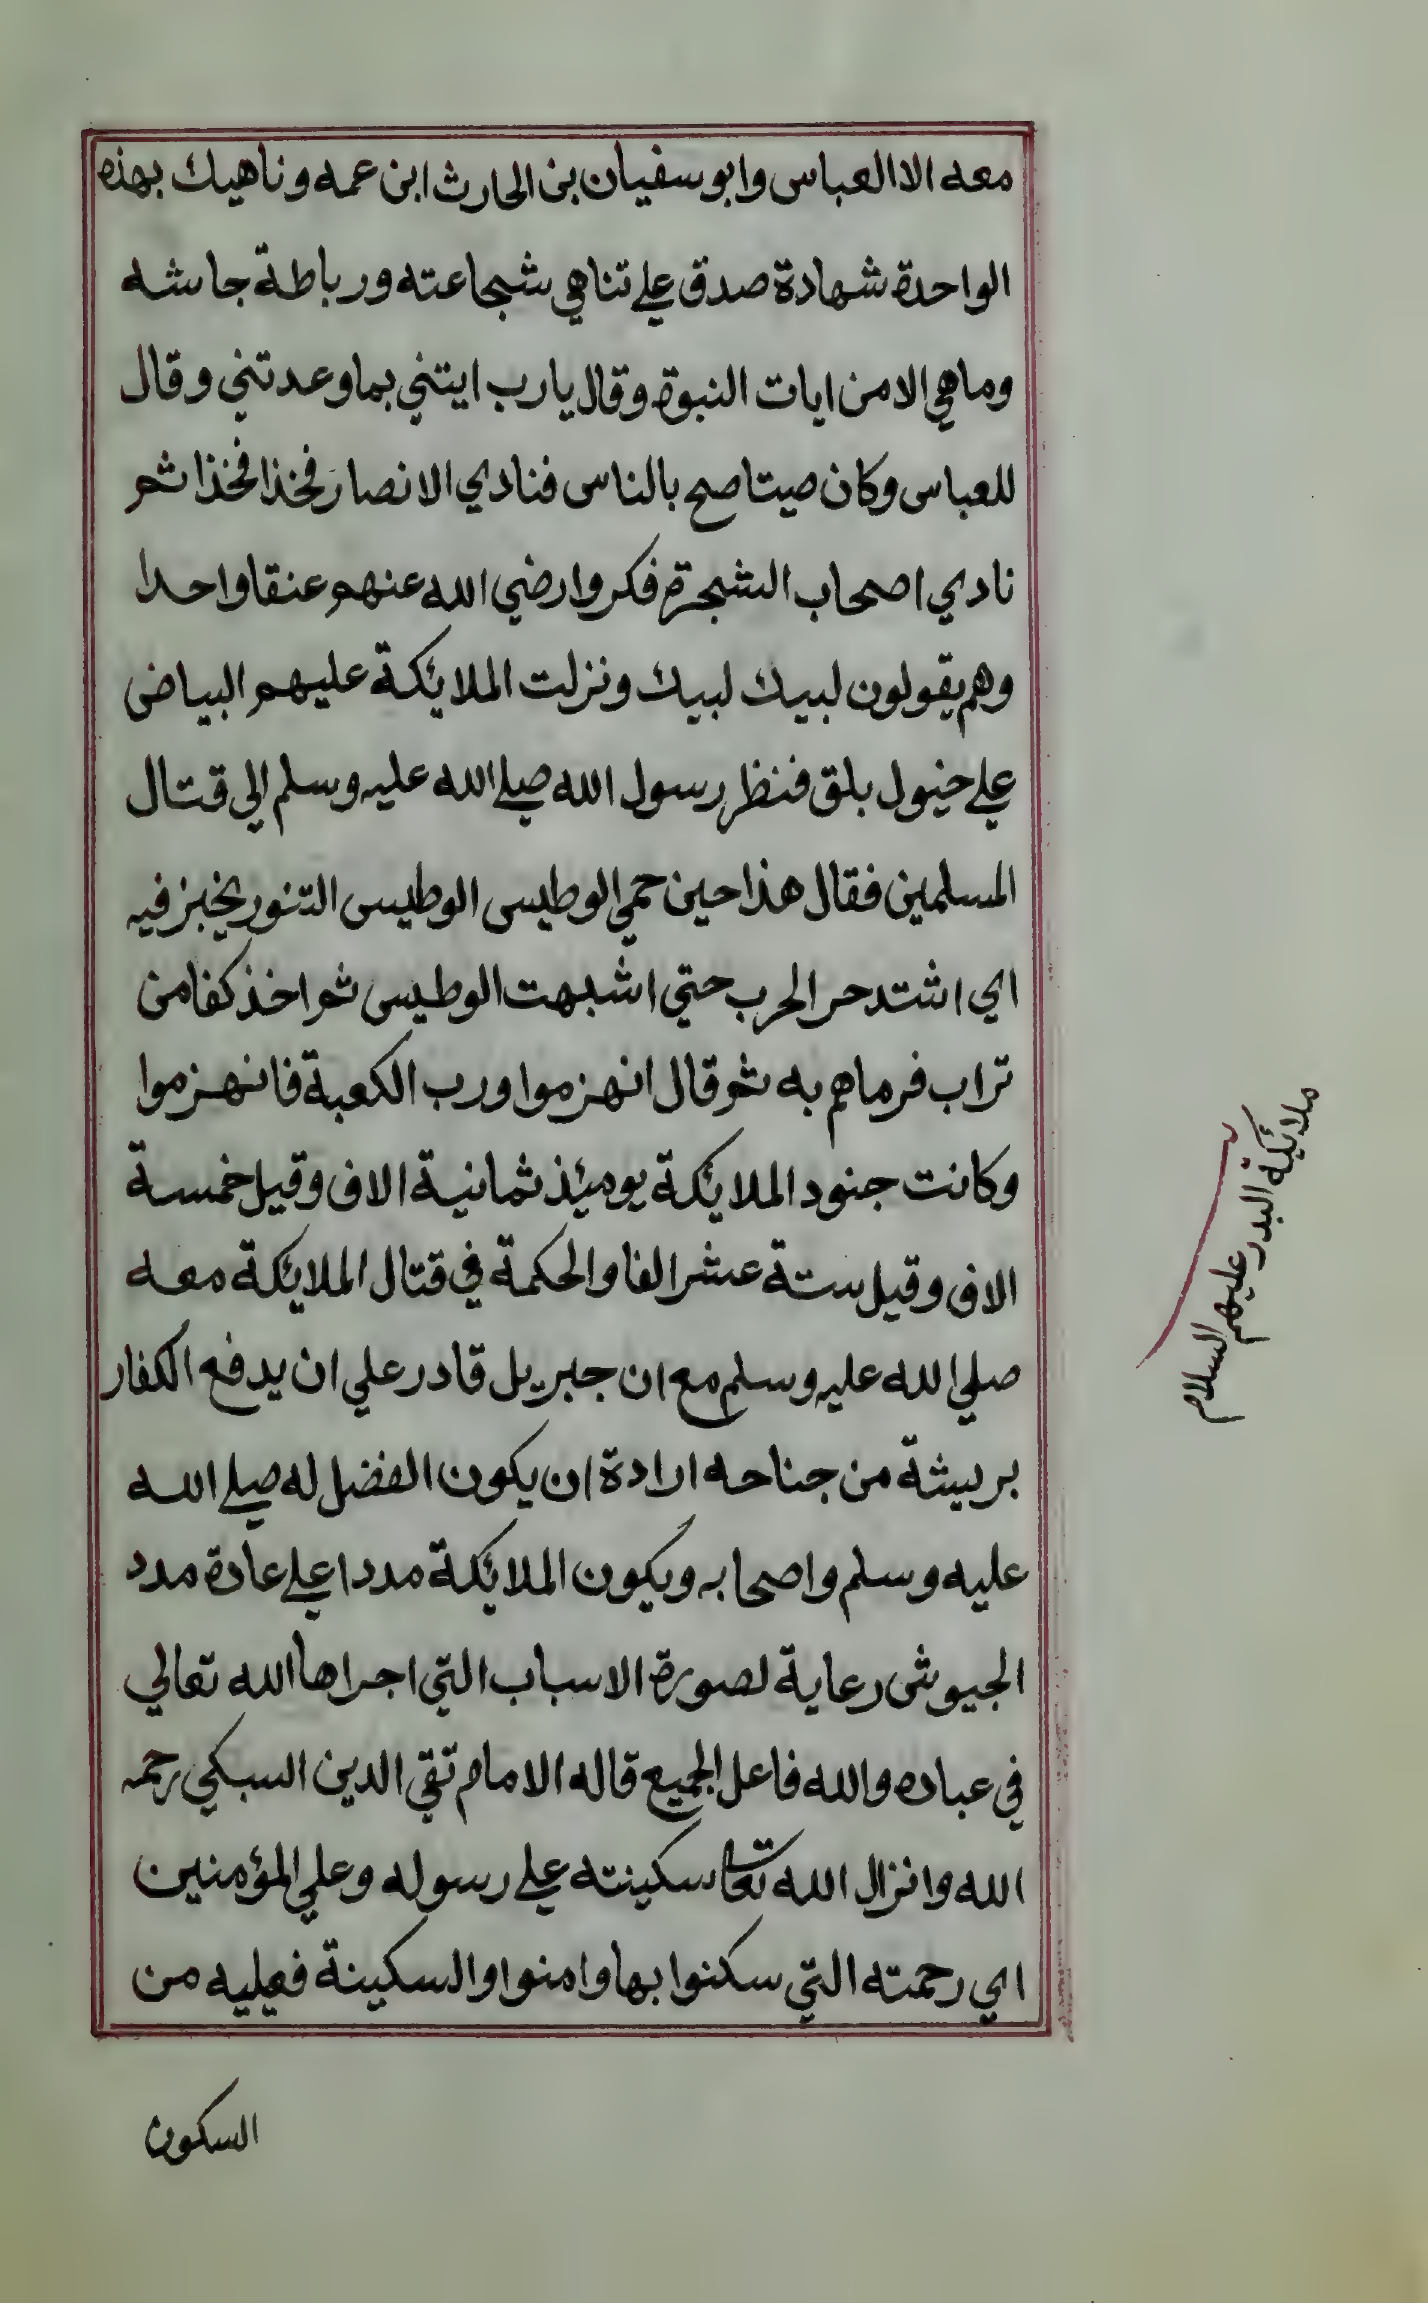 معه الا العباس وابو سفيان بن الحارث ابن عمه وناهيك بهذه
الواحدة شهادة صدق علي تناهي شجاعته ورباطة جاشه
وما هي الا من ايات النبوة وقال يارب ايتني بما وعدتني وقال
للعباس وكان صيتا صح بالناس فنادي الانصار فخذا فخذا ثم
نادي اصحاب الشجرة فكروا رضي الله عنهم عنقا واحدا
وهم يقولون لبيك لبيك ونزلت الملائكة عليهم البياض
علي خيول بلق فنظر رسول الله صلي الله عليه وسلم الي قتال
المسلمين فقال هذا حين حمي الوطيس الوطيس التنور يخبز فيه
اي اشتد حر الحرب حتي اشبهت الوطيس ثم اخذ كفا من
تراب فرماهم به ثم قال انهزموا ورب الكعبة فانهزموا
وكانت جنود الملائكة يومئذ ثمانية الاف وقيل خمسة
الاف وقيل ستة عشر الفا والحكمة في قتال الملائكة معه
صلي الله عليه وسلم مع ان جبريل قادر علي ان يدفع الكفار
بريشة من جناحه ارادة ان يكون الفضل له صلي الله
عليه وسلم واصحابه ويكون الملائكة مددا علي عادة مدد
الجيوش رعاية لصورة الاسباب التي اجراها الله تعالي
في عباده والله فاعل الجميع قاله الامام تقي الدين السبكي رحمه
الله وانزال الله تعا سكينته علي رسوله وعلي المؤمنين
اي رحمته التي سكنوا بها وامنوا والسكينة فعليه من
السكون
ملائكة البدر عليهم السلام